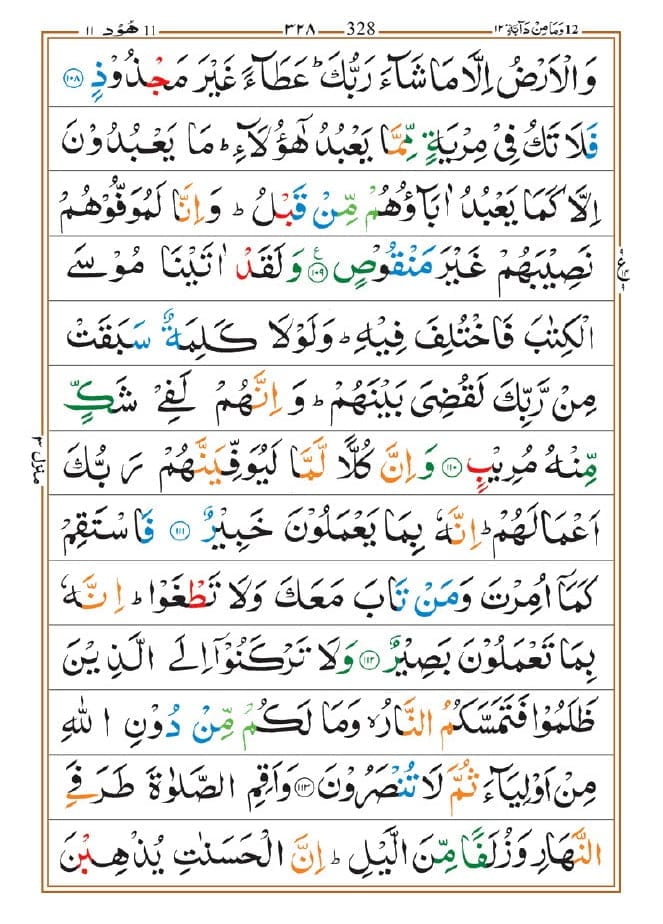 12 وَمَا مِنْ دَآبَّةٍ ١٢ 328 ٣٢٨ 11 هُوْد ١١
وَالْاَرْضُ اِلَّا مَا شَآءَ رَبُّكَ ؕ عَطَآءً غَيْرَ مَجْذُوْذٍ ﴿۱۰۸﴾
فَلَا تَكُ فِىْ مِرْيَةٍ مِّمَّا يَعْبُدُ هٰٓؤُلَآءِ ؕ مَا يَعْبُدُوْنَ
اِلَّا كَمَا يَعْبُدُ اٰبَآؤُهُمْ مِّنْ قَبْلُ ؕ وَاِنَّا لَمُوَفُّوْهُمْ
نَصِيْبَهُمْ غَيْرَ مَنْقُوْصٍ ﴿۱۰۹﴾ ع وَلَقَدْ اٰتَيْنَا مُوْسَى
ع ٩
الْكِتٰبَ فَاخْتُلِفَ فِيْهِ ؕ وَلَوْلَا كَلِمَةٌ سَبَقَتْ
مِنْ رَّبِّكَ لَقُضِىَ بَيْنَهُمْ ؕ وَاِنَّهُمْ لَفِىْ شَكٍّ
مِّنْهُ مُرِيْبٍ ﴿۱۱۰﴾ وَاِنَّ كُلًّا لَّمَّا لَيُوَفِّيَنَّهُمْ رَبُّكَ
منزل ٣
اَعْمَالَهُمْ ؕ اِنَّهٗ بِمَا يَعْمَلُوْنَ خَبِيْرٌ ﴿۱۱۱﴾ فَاسْتَقِمْ
كَمَآ اُمِرْتَ وَمَنْ تَابَ مَعَكَ وَلَا تَطْغَوْا ؕ اِنَّهٗ
بِمَا تَعْمَلُوْنَ بَصِيْرٌ ﴿۱۱۲﴾ وَلَا تَرْكَنُوْۤا اِلَى الَّذِيْنَ
ظَلَمُوْا فَتَمَسَّكُمُ النَّارُ ۙ وَمَا لَكُمْ مِّنْ دُوْنِ اللّٰهِ
مِنْ اَوْلِيَآءَ ثُمَّ لَا تُنْصَرُوْنَ ﴿۱۱۳﴾ وَاَقِمِ الصَّلٰوةَ طَرَفَىِ
النَّهَارِ وَزُلَفًا مِّنَ الَّيْلِ ؕ اِنَّ الْحَسَنٰتِ يُذْهِبْنَ